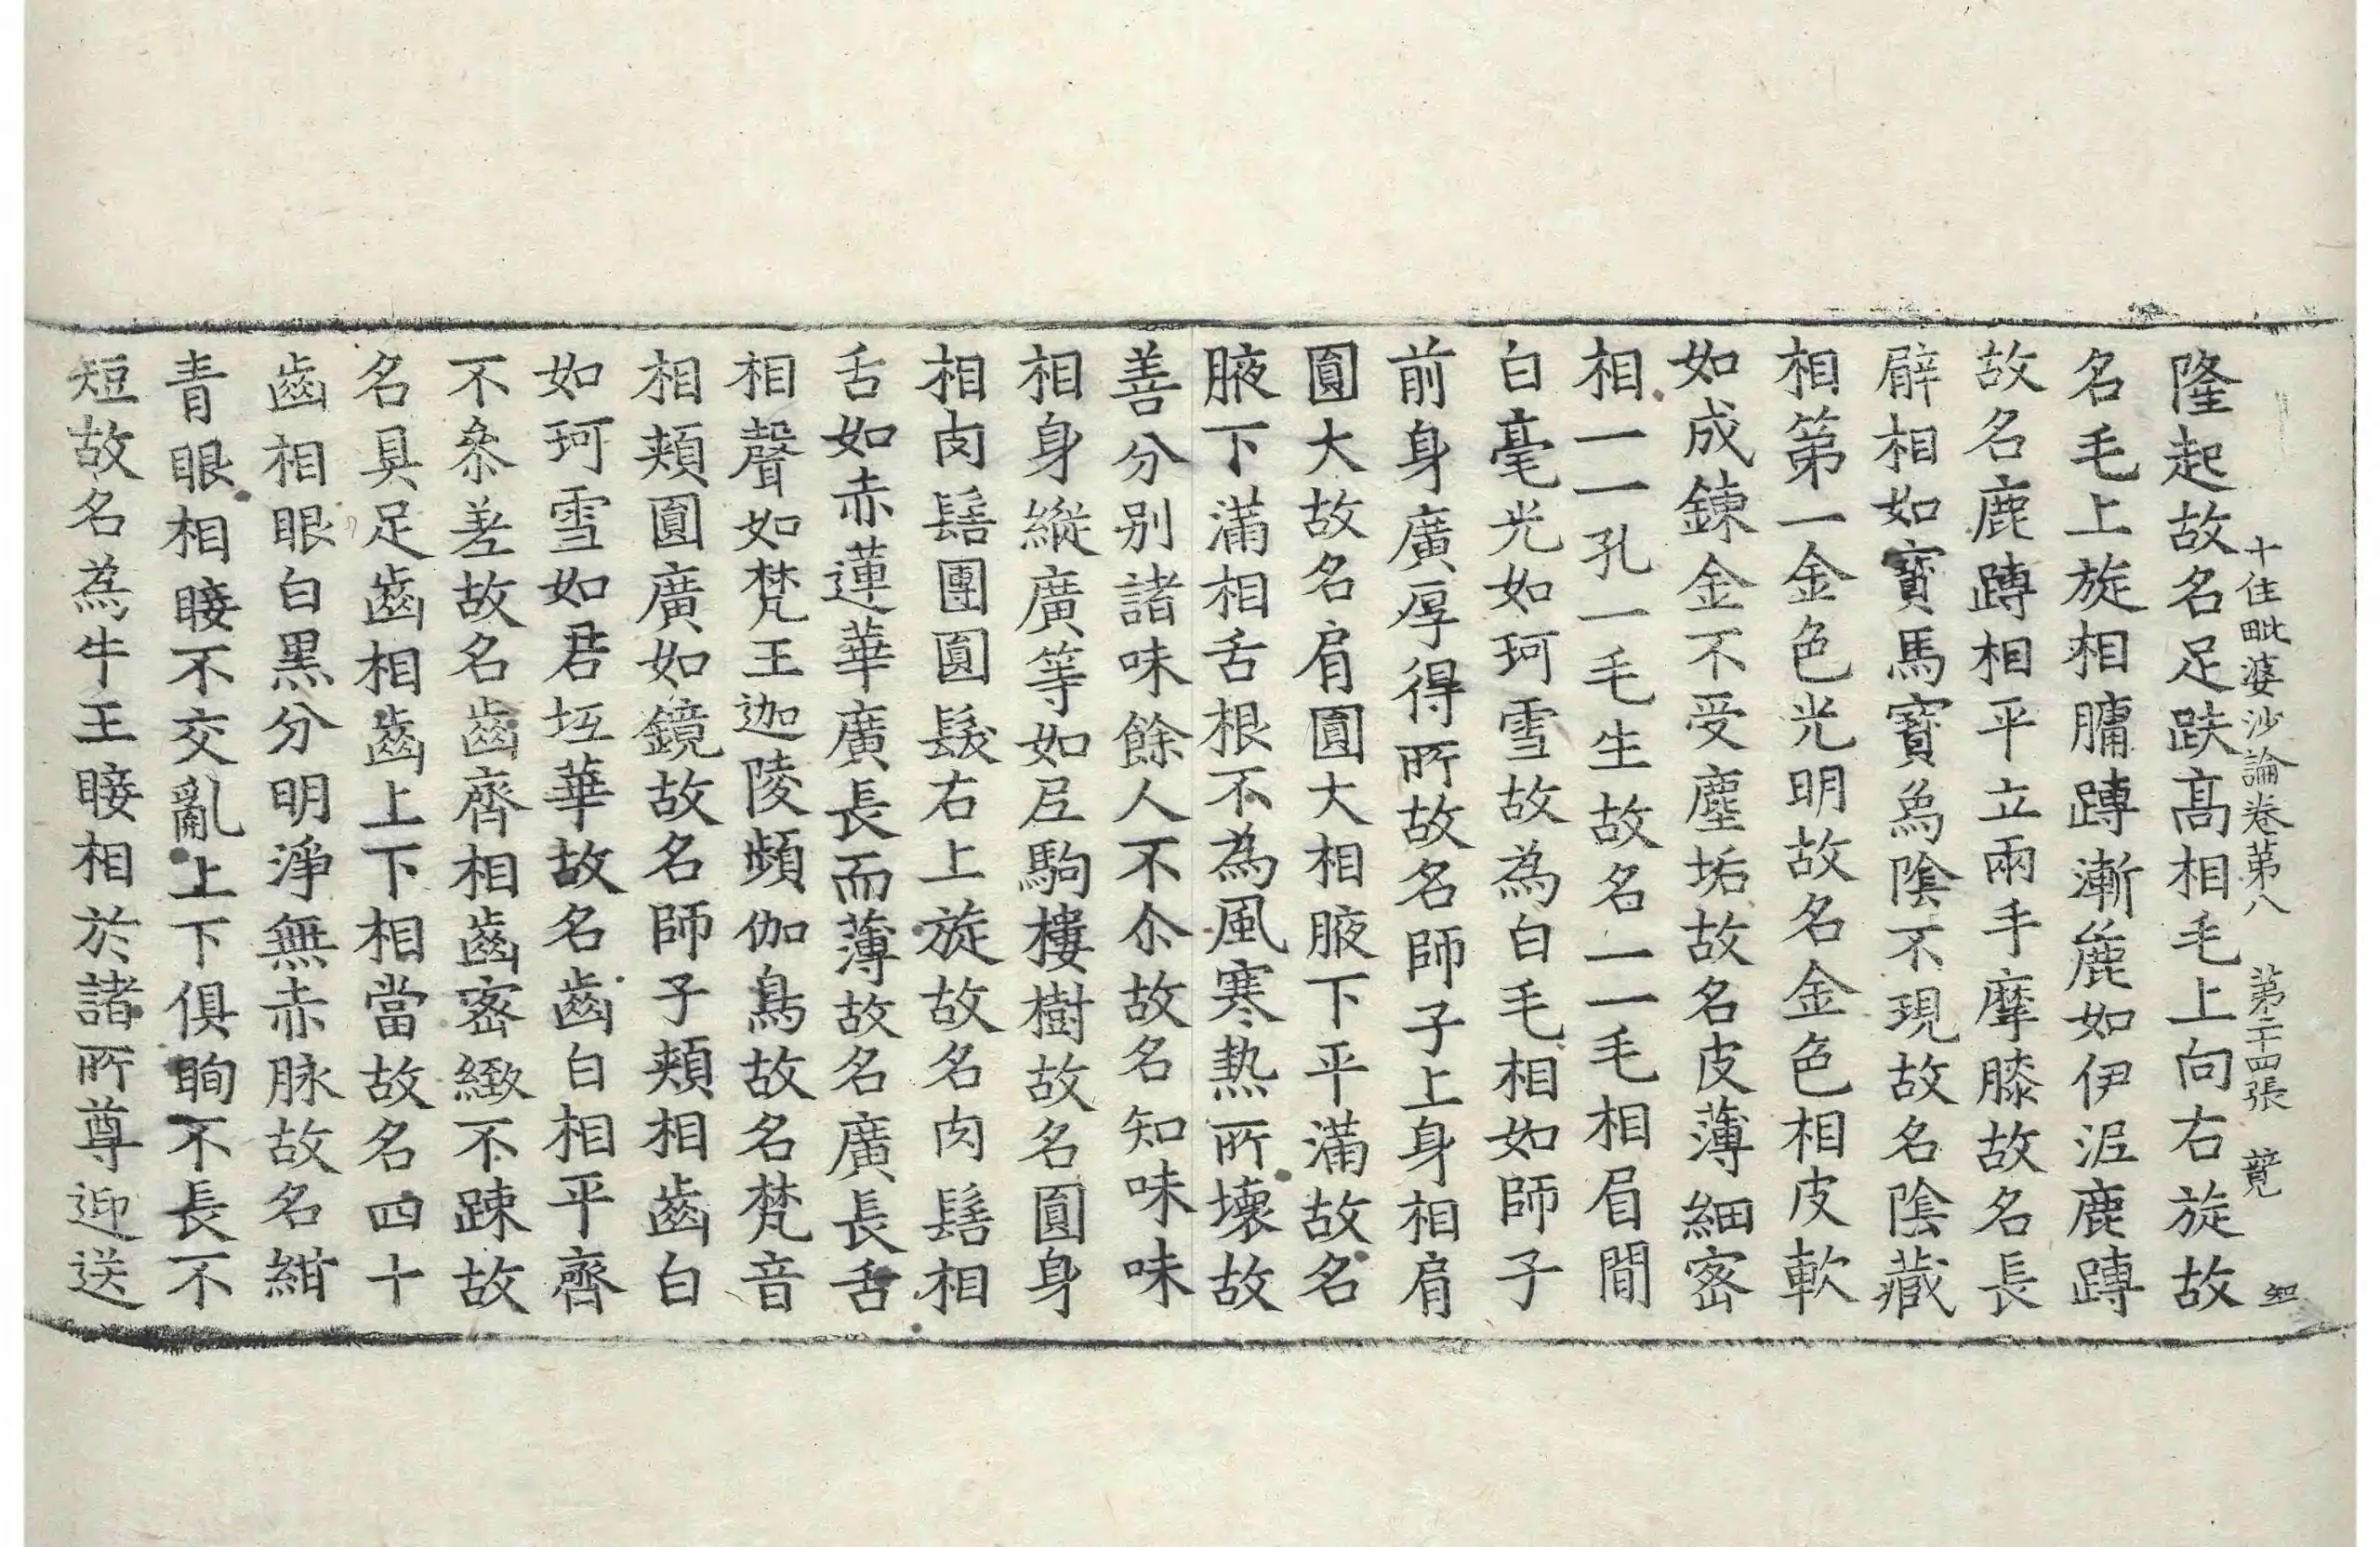 十住毗婆沙論卷第八 第二十四張 竟 知
隆起故名足趺髙相毛上向右旋故
名毛上旋相𦟛蹲漸麁如伊泥鹿蹲
故名鹿蹲相平立兩手摩膝故名長
臂相如寳馬寳爲陰不現故名陰藏
相第一金色光明故名金色相皮軟
如成鍊金不受塵垢故名皮薄細宻
相一一孔一毛生故名一一毛相眉間
白毫光如珂雪故為白毛相如師子
前身廣厚得所故名師子上身相肩
圓大故名肩圓大相腋下平滿故名
腋下滿相舌根不為風寒熱所壞故
善分别諸味餘人不尒故名知味味
相身縱廣等如尼駒樓樹故名圓身
相肉髻團圓髮右上旋故名肉髻相
舌如赤蓮華廣長而薄故名廣長舌
相聲如梵王迦陵頻伽鳥故名梵音
相頰圓廣如鏡故名師子頰相齒白
如珂雪如君坘華故名齒白相平齊
不叅差故名齒齊相齒宻緻不踈故
名具足齒相齒上下相當故名四十
齒相眼白黒分明淨無赤脉故名紺
青眼相睫不交亂上下俱眴不長不
短故名為牛王睫相於諸所尊迎送